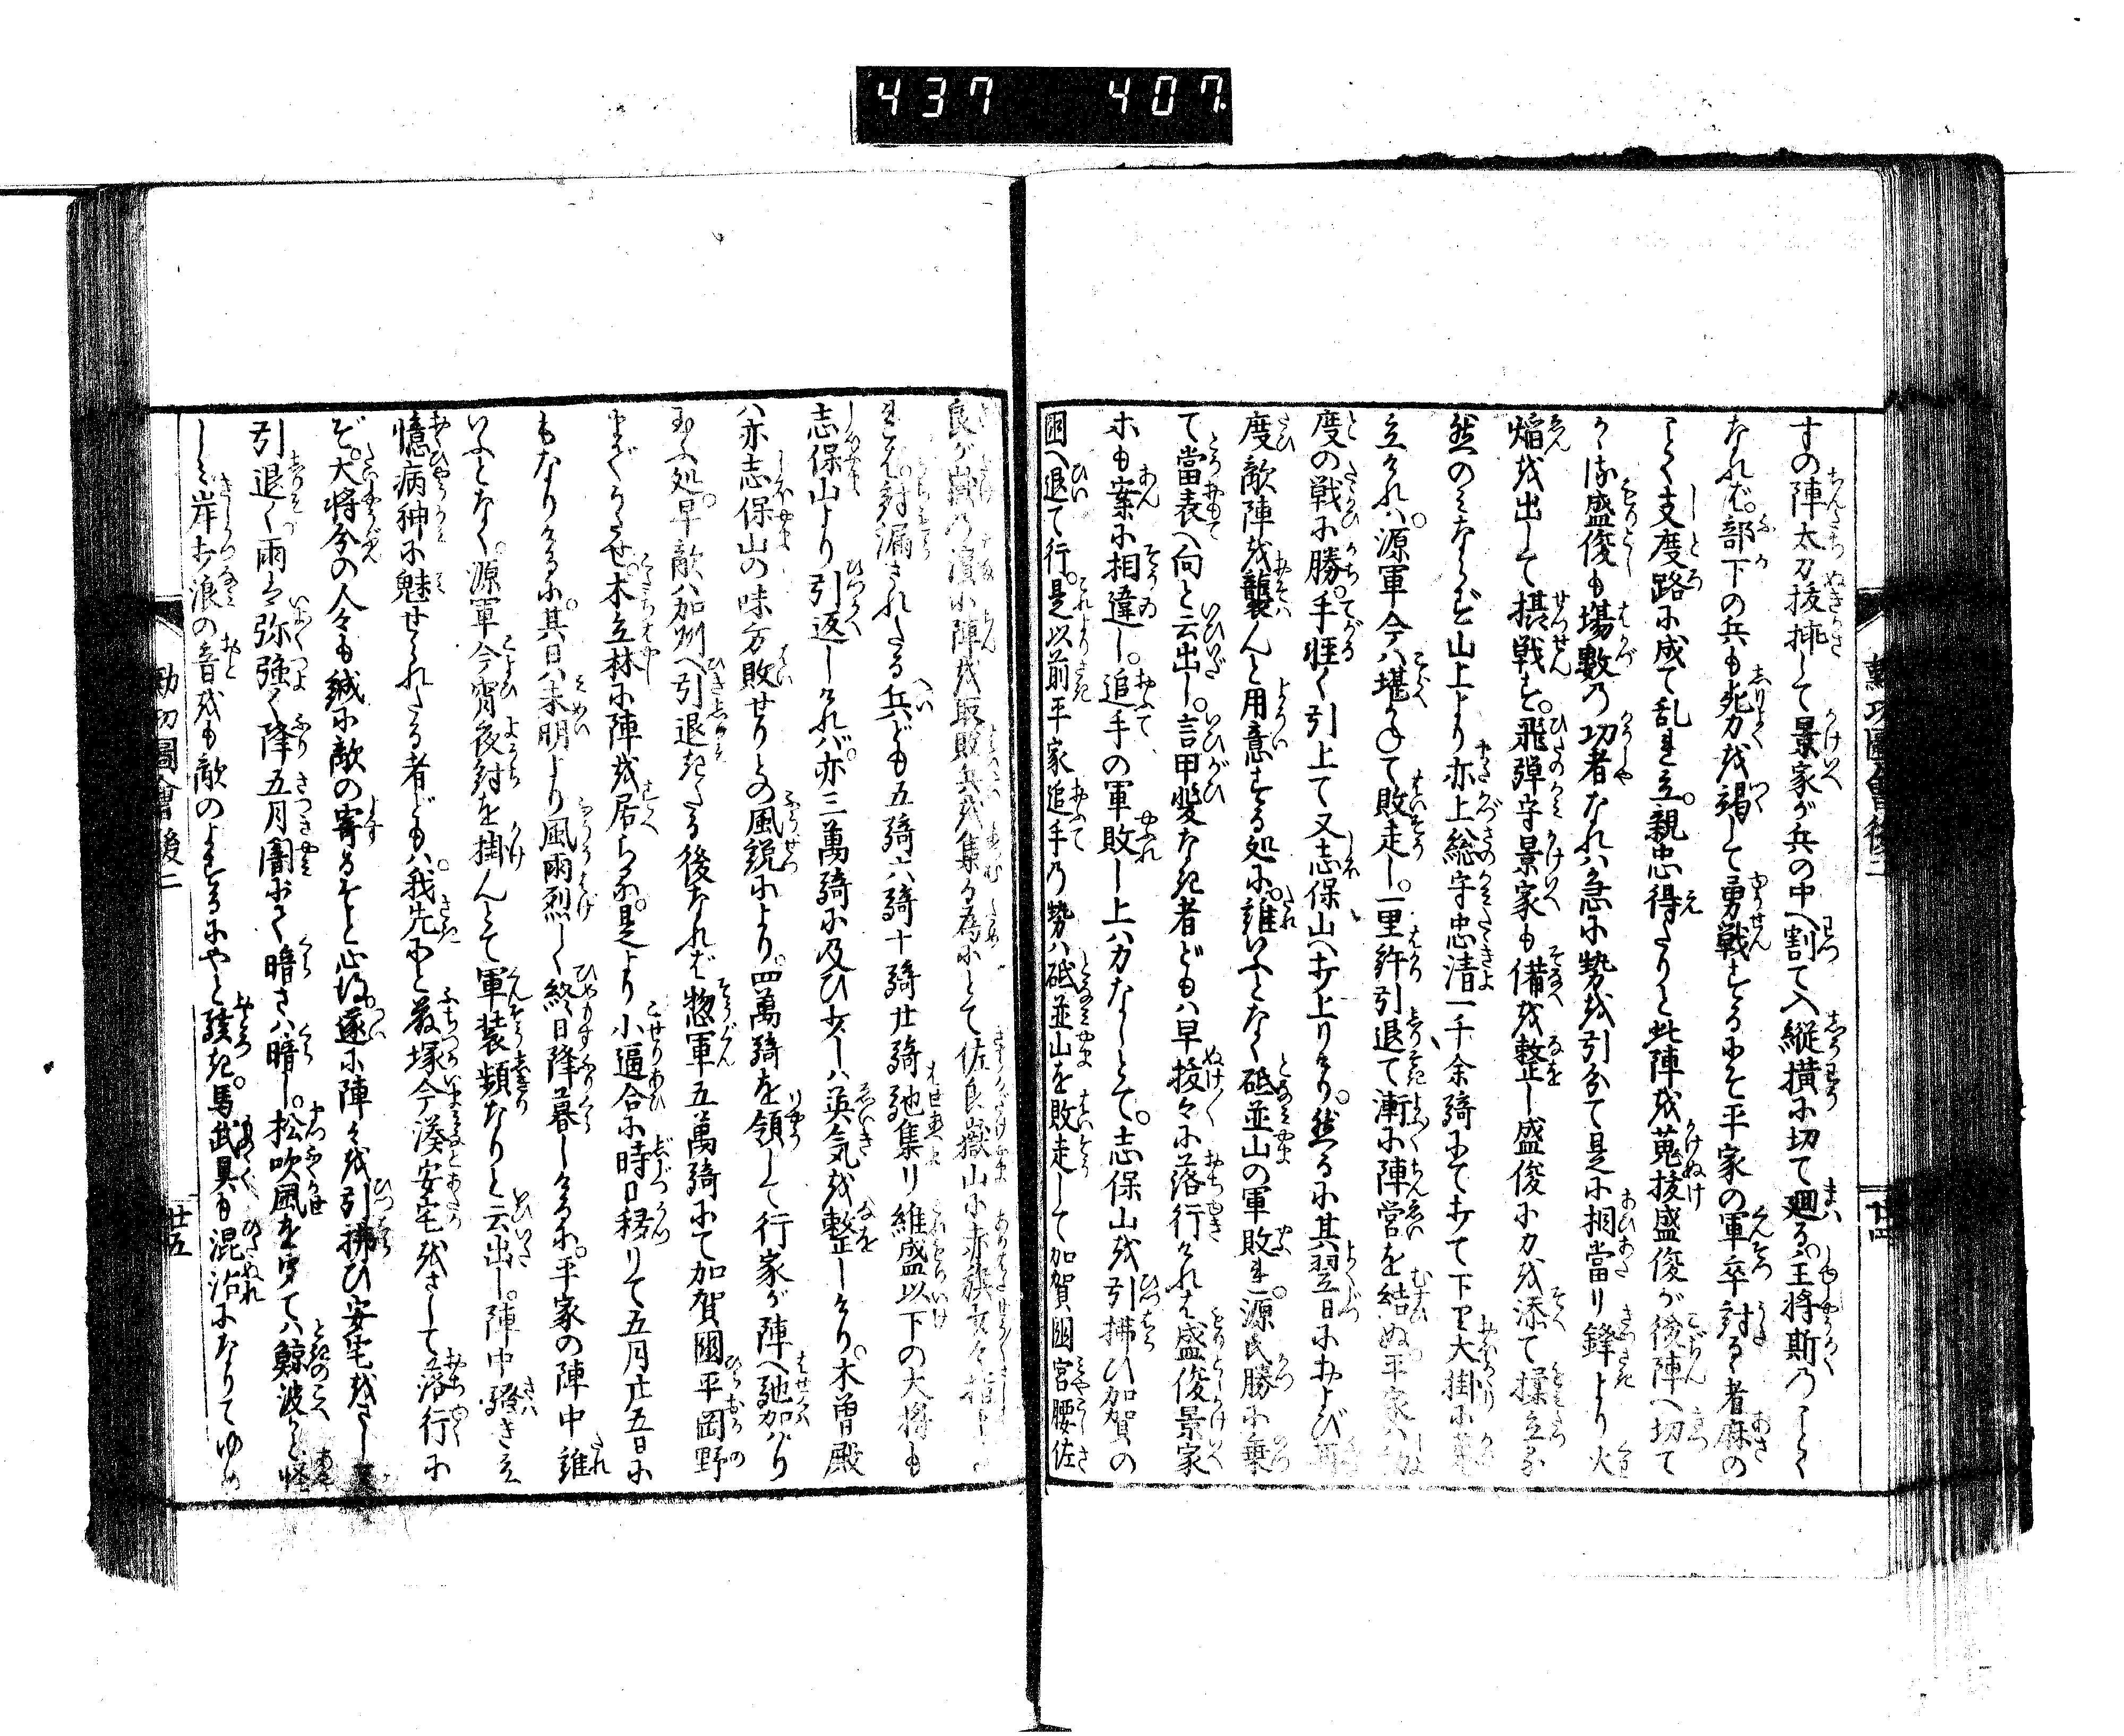 437 407
すの陣太刀抜挿して景家が兵の中へ割て入縦横に切て廻る。王将斯のごとく
なれば。部下の兵も死力を竭して勇戦するにぞ平家の軍卒討るゝ者麻の
ごとく支度路に成て乱れ立。親忠得たりと此陣を蒐抜盛俊が後陣へ切て
かゝる盛俊も場数の功者なれば急に勢を引分て是に相當り鋒より火
焔を出して摂戦す。飛弾守景家も備を整し盛俊に力を添て揉立る
然のみならず山上より亦上総守忠清一千余騎にて打て下り大掛に
立ければ。源軍今は堪かねて敗走し。一里許引退て漸に陣営を結ぬ平家は
度の戦に勝。手軽く引上て又志保山へ打上りけり。然るに其翌日におよび再
度敵陣を襲んと用意する処に。誰いふとなく砺並山の軍敗れ。源氏勝に乗
て當表へ向と云出し。言甲斐なき者どもは早抜々に落行ければ盛俊景家
ホも案に相違し。追手の軍敗し上は力なしとて。志保山を引拂ひ加賀の
國へ退て行。是以前平家追手の勢は砥並山を敗走して加賀國宮腰佐
良が嶽の濱に陣を取敗兵を集る為にとて佐良嶽山に赤旗
れば。討漏されたる兵ども五騎六騎十騎廿騎馳集り維盛以下の大将も
志保山より引返しければ。亦三萬騎に及び少しは英気を整しけり。木曽殿
は亦志保山の味方敗せりとの風説により。四萬騎を領して行家が陣へ馳加はり
玉ふ処。早敵は加刕へ引退きたる後なれば惣軍五萬騎にて加賀國平岡野
木立林に陣を居らる。是より小逼合に時日移りて五月廿五日に
もなりけるに。其日は未明より風雨烈しく終日降暮しけるに。平家の陣中誰
いふとなく。源軍今宵夜討を掛んとて軍装頻なりと云出し。陣中騒き立
憶病神に魅せられたる者どもは。我先にと蕀塚今湊安宅をさして落行に
ぞ。大将分の人々も緘に敵の寄るぞと心得。遂に陣々を引拂ひ安宅をさし
引退く雨は弥強く降五月闇にて暗さは暗し。松吹風を聞ては鯨波かと怪
しみ岸打浪の音をも敵のよするにやと騒き。馬武具も混沾になりてゆめ
勲功圖會後二
廿五